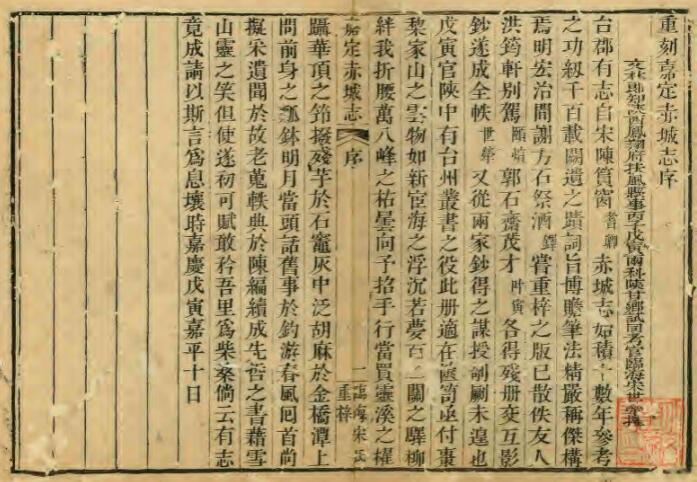 重刻嘉定赤城志序
文林郎知陝西鳳翔府扶風縣事丙子戊寅兩科陝甘鄉試同考官臨海宋世犖撰
台郡有志自宋陳篔窗耆卿赤城志始積十數年參考
之功紉千百載闕遺之蹟詞旨博贍筆法精嚴稱傑構
焉明宏治間謝方石祭酒鐸嘗重梓之版已散佚友人
洪筠軒別駕頤煊郭石齋茂才叶寅各得殘册交互影
鈔遂成全帙世犖又從兩家鈔得之謀授剞劂未遑也
戊寅官陝中有台州叢書之役此册適在匧笥亟付棗
棃家山之雲物如新宦海之浮沉若夢百二關之驛柳
絆我折腰萬八峰之祐曇向予招手行當買靈溪之櫂
嘉定赤城志 序 二 臨海宋氏重梓
躡華頂之筇撥殘芋於石竈灰中泛胡麻於金橋潭上
問前身之瓢鉢明月當頭話舊事於釣游春風回首尚
擬采遺聞於故老蒐軼典於陳編續成先哲之書藉雪
山靈之笑但使遂初可賦敢矜吾里爲柴桑倘云有志
竟成請以斯言爲息壤時嘉慶戊寅嘉平十日